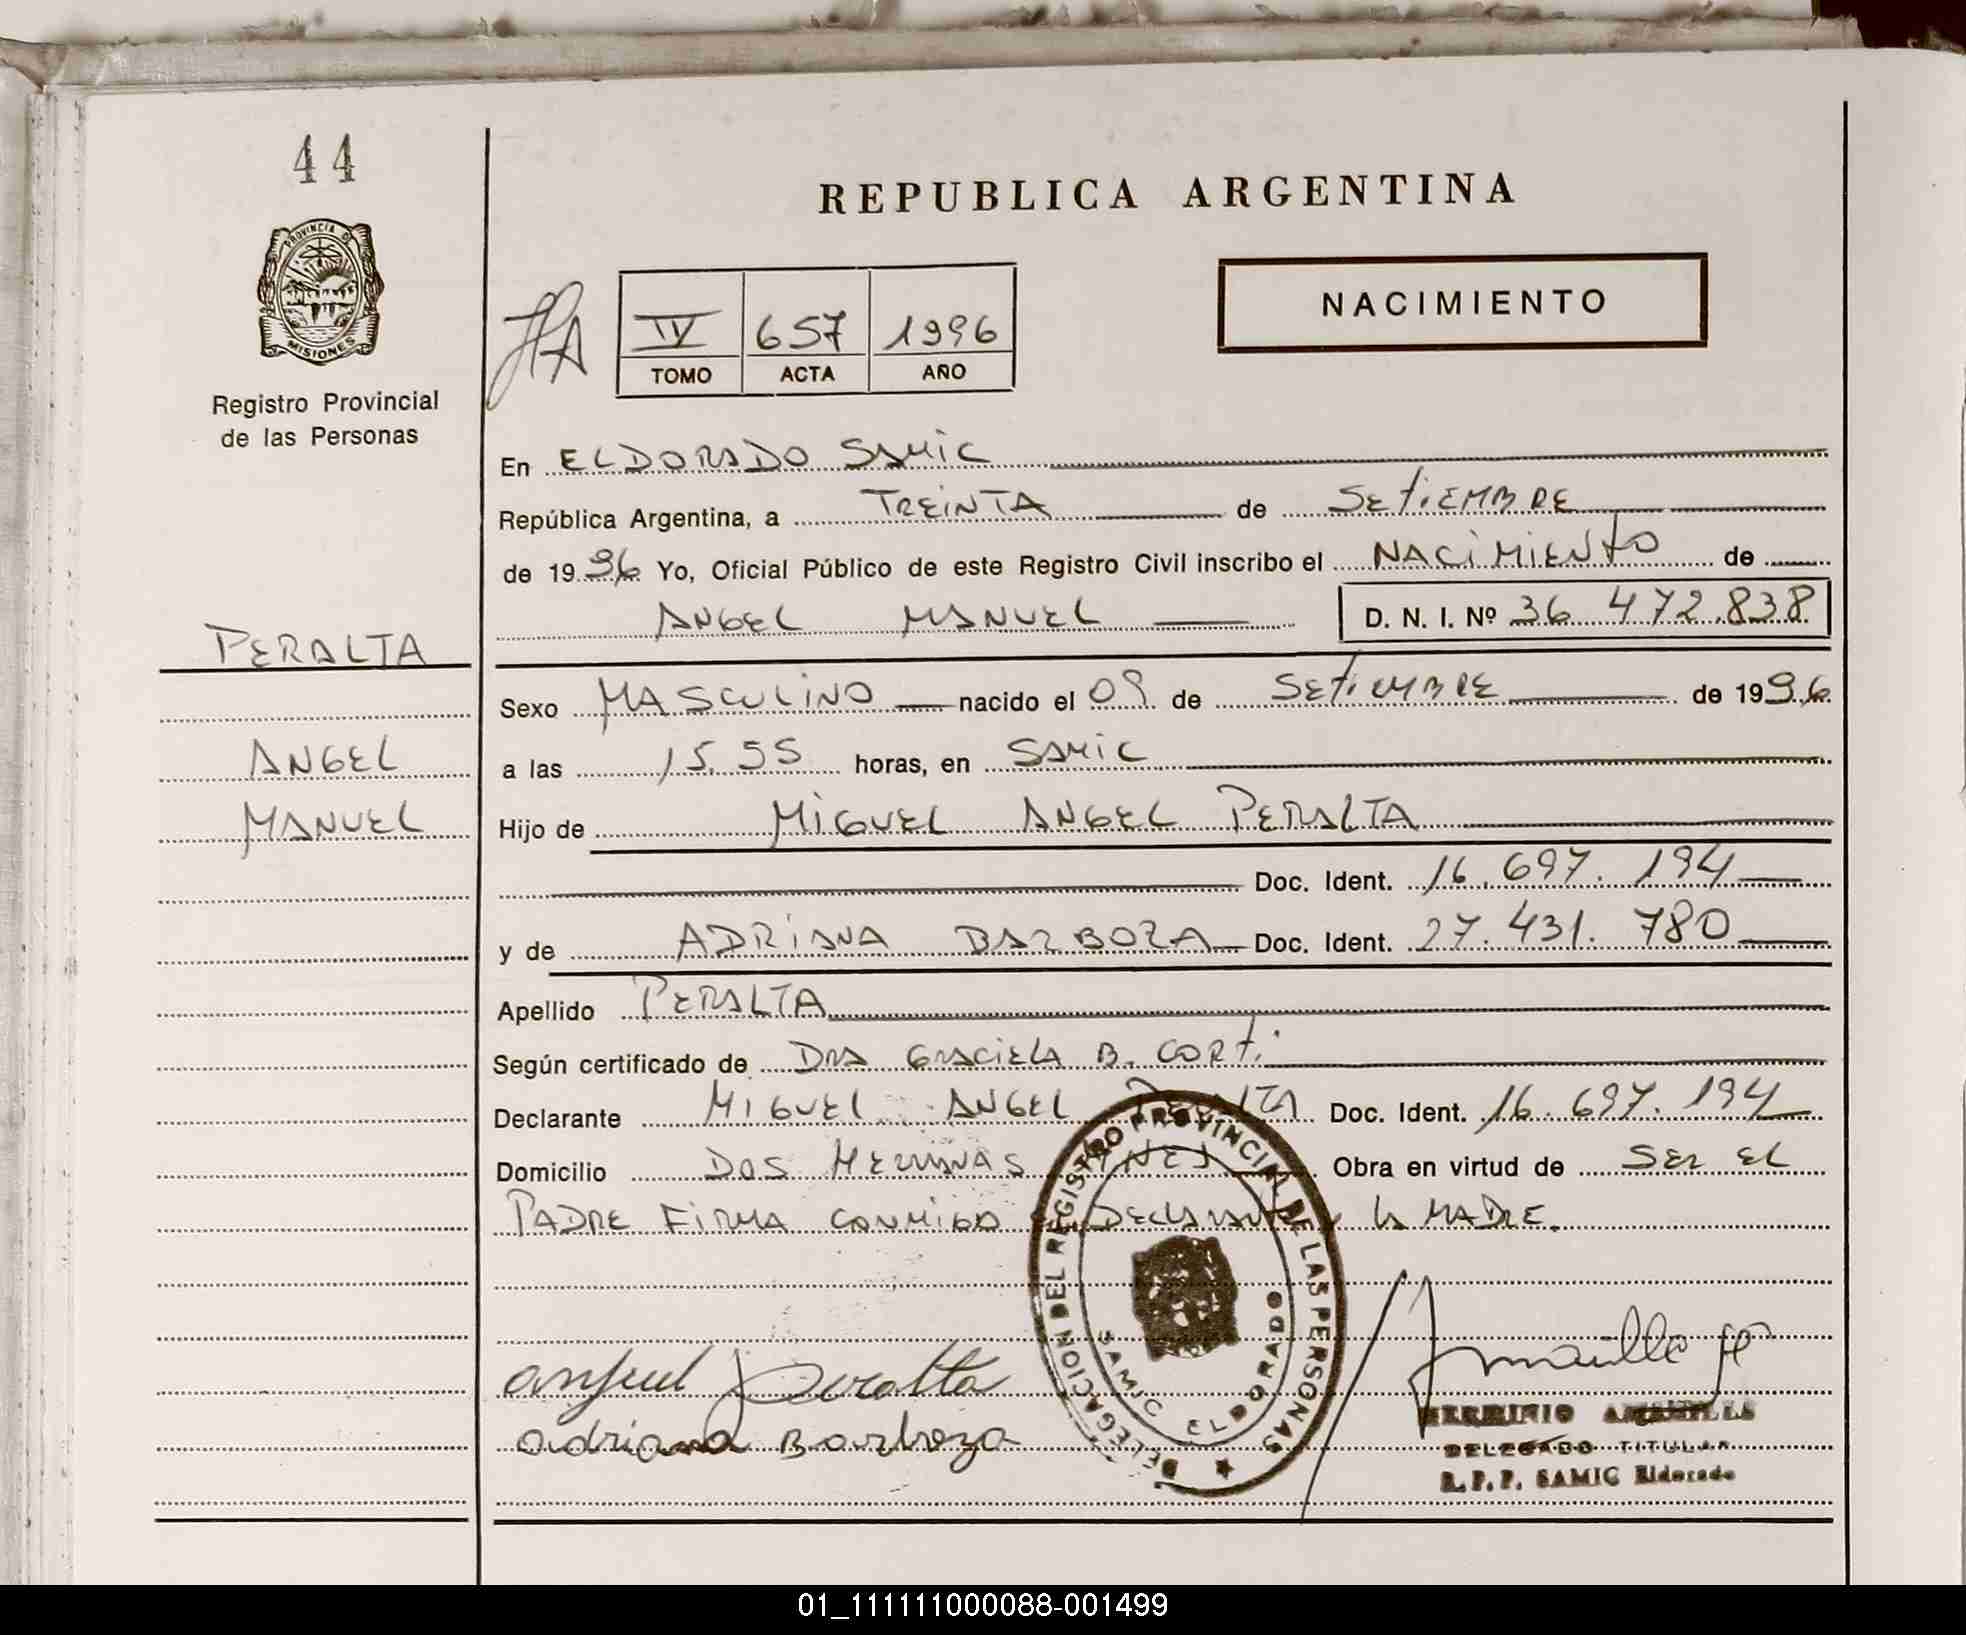 44
REPUBLICA ARGENTINA
PROVINCIA DE
MISIONES
NACIMIENTO
IV 657 1996
TOMO ACTA AÑO
Registro Provincial
de las Personas
En ELDORADO SAMIC
República Argentina, a TREINTA de SETIEMBRE
de 1996 Yo, Oficial Público de este Registro Civil inscribo el NACIMIENTO de
ANGEL MANUEL D. N. I. Nº 36 472.838
PERALTA
Sexo MASCULINO nacido el 09 de SETIEMBRE de 1996
ANGEL
a las 15.55 horas, en SAMIC
MANUEL
Hijo de MIGUEL ANGEL PERALTA
Doc. Ident. 16.697.194
y de ADRIANA BARBOZA Doc. Ident. 27.431.780
Apellido PERALTA
Según certificado de DRA GRACIELA B. CORTI
Declarante MIGUEL ANGEL PERALTA Doc. Ident. 16.697.194
Domicilio DOS HERMANAS Obra en virtud de SER EL
PADRE FIRMA CONMIGO DECLARANTE Y LA MADRE.
DELEGACION DEL REGISTRO PROVINCIAL DE LAS PERSONAS
SAMIC ELDORADO
Peralta
adriana Barboza
HERMINIO
DELEGADO TITULAR
R.P.P. SAMIC Eldorado
01_111111000088-001499